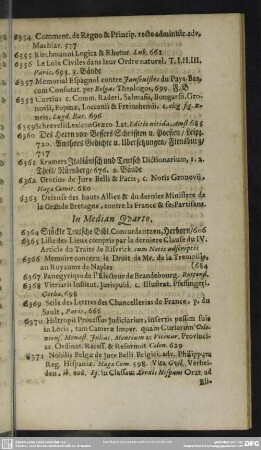 6354 Comment. de Regno & Princip. recte administr. adv.
Machiav. 577
6355 Kirchmanni Logica & Rhetor. Lub. 662
6356 Le Loix Civiles dans leur Ordre naturel, T. I. II. III.
Paris, 695. 3. Bände
6357 Memorial Espagnol contre Jansenistes du Pays Bas,
cum Confutat. per Belgas Theologos, 699. F. B
6358 Curtius c. Comm. Raderi, Salmasii, Bongarsii, Gro-
novii, Popmæ, Loccenii & Freinshemii, c. fig. æ-
neis, Lugd. Bat. 696
6359 Schrevelii Lexicon Græco Lat. Editio nitida, Amst 685
6360 Des Herrn von Bessers Schrifften u. Poesien / Leipz.
720. Amthors Gedichte u. Ubersetzungen / Flensburg
717
6361 Kramers Italiänisch und Teutsch Dictionarium, 1. 2.
Theil / Nürnberg / 676. 2. Bände
6362 Grotius de Jure Belli & Pacis, c. Notis Gronovii,
Haga Comit. 680
6363 Defense des hauts Alliez & du dernier Ministere de
la Grande Bretagne, contre la France & ses Partisans.
In Median Quarto.
6364 Stöckle Teutsche Bibl. Concordantzen, Herborn / 606
6365 Liste des Lieux compris par la derniere Clause du IV.
Article du Traite de Risvvick cum Notis adscriptis
6366 Memoire concern. le Droit de Mr. de la Tremoille,
au Royaume de Naples (684
6367 Panegyrique de l'Electeur de Brandebourg, Rotterd.
6368 Vitriarii Institut. Jurispubl. c. Illustrat. Pfeffingeri,
Gotha, 698
6369 Stile des Lettres des Chancelleries de France, p. du
Sault, Paris, 666
6370 Historopii Processus Judiciarius, insertis passim suis
in Locis, tam Cameræ Imper. quam Curiarum Colo-
niens. Monast. Juliac. Montium ac Viennar. Provinci-
ar. Ordinat. Recess. & Reformat. Colon. 629
6371 Nobilis Belgæ de Jure Belli Belgici, adv. Philippum
Reg. Hispaniæ, Haga Com. 598. Vita Guil. Verhei-
den, ib. 606. Ej. in Classem Xerxis Hispani Orat. ad